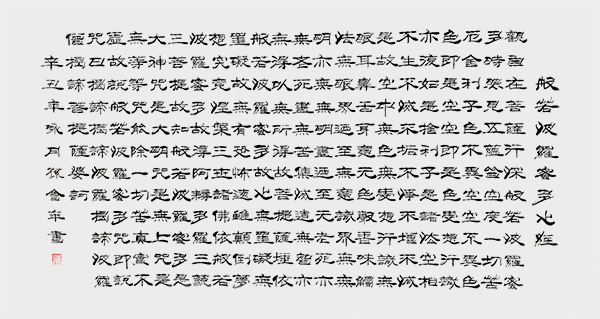 般若波羅蜜多心經
觀自在菩薩行深般若波羅蜜
多時照見五蘊皆空度一切苦
厄舍利子色不異空空不異色
色即是空空即是色受想行識
亦復如是舍利子是諸法空相
不生不滅不垢不淨不增不減
是故空中無色無受想行識無
眼耳鼻舌身意無色聲香味觸
法無眼界乃至無意識界無無
明亦無無明盡乃至無老死亦
無老死盡無苦集滅道無智亦
無得以無所得故菩提薩埵依
般若波羅蜜多故心無罣礙無
罣礙故無有恐怖遠離顛倒夢
想究竟涅槃三世諸佛依般若
波羅蜜多故得阿耨多羅三藐
三菩提故知般若波羅蜜多是
大神咒是大明咒是無上咒是
無等等咒能除一切苦真實不
虛故說般若波羅蜜多咒即說
咒曰揭諦揭諦波羅揭諦波羅
僧揭諦菩提薩婆訶
辛丑年月孫會年書